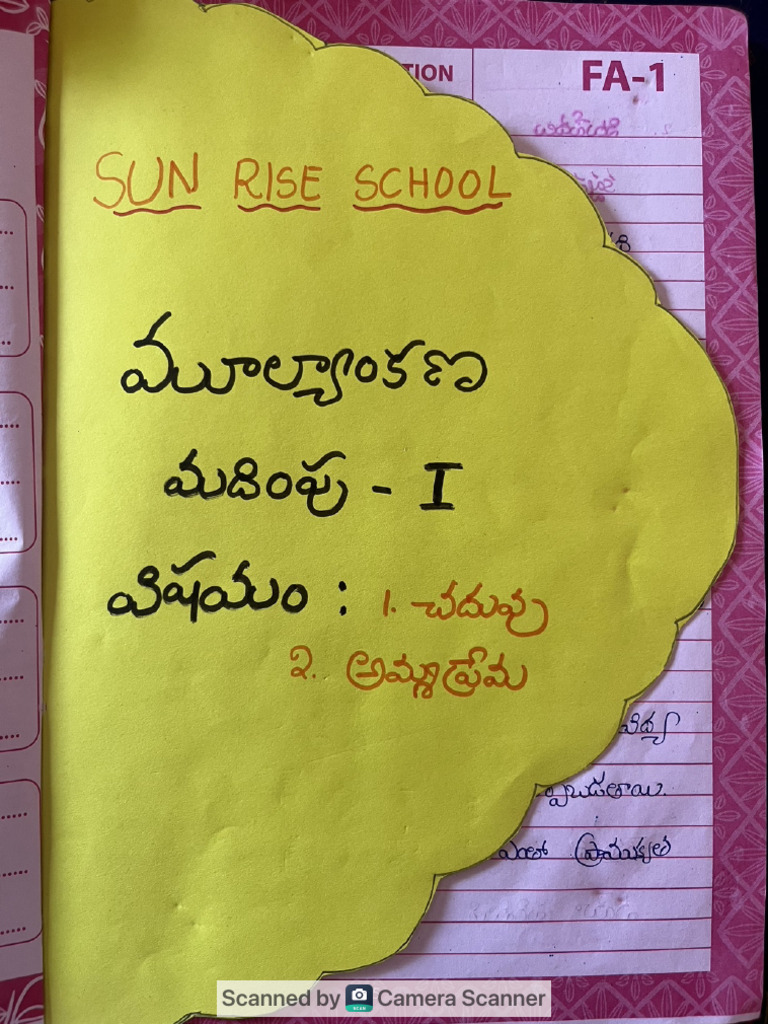 FA-1
SUN RISE SCHOOL
మూల్యాంకణ
మదింపు - I
విషయం : 1. చదువు
2. అమ్మప్రేమ
విద్యా
ప్రాముఖ్యత
Scanned by Camera Scanner